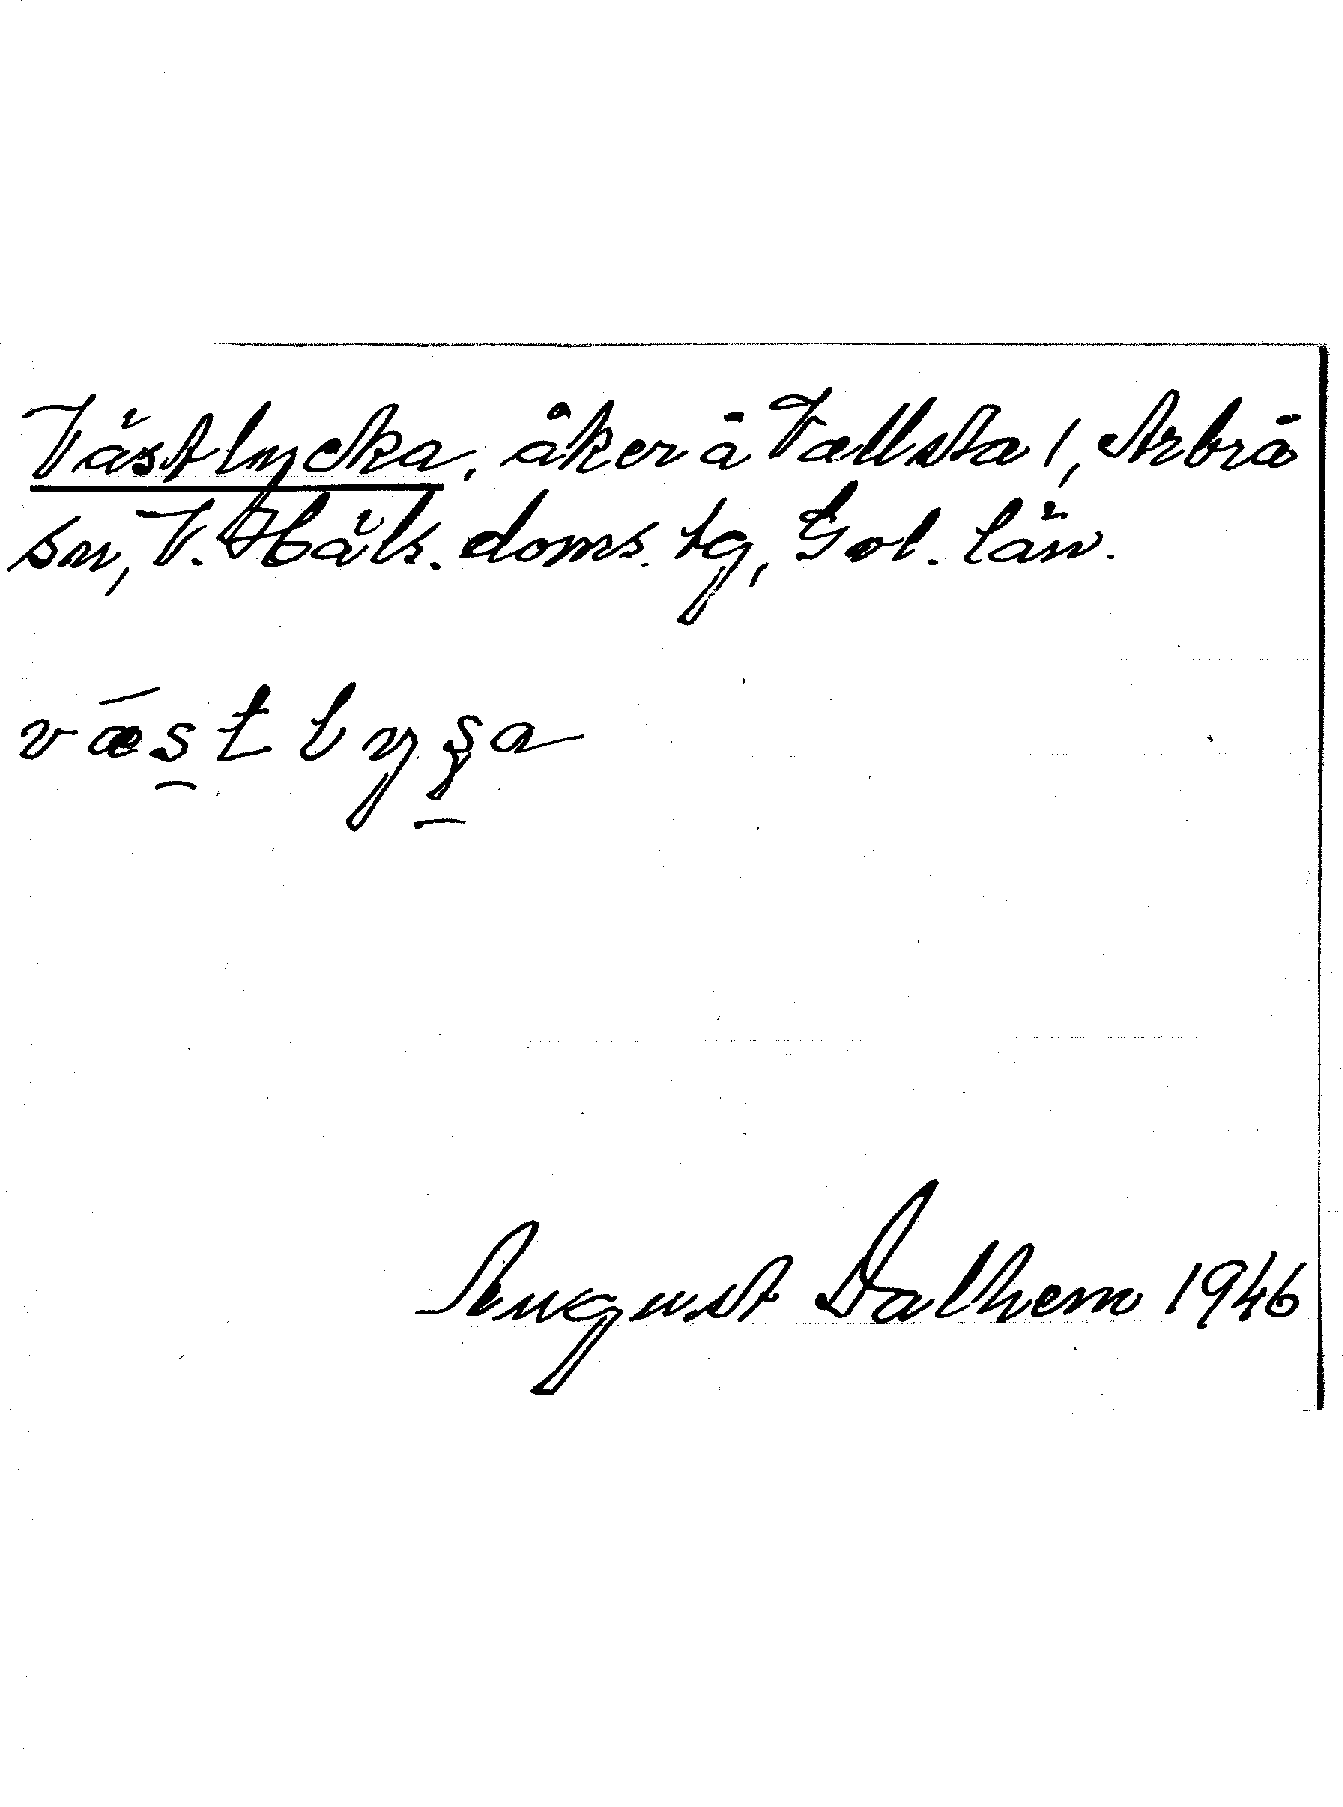 Västlycka, åker å Vallsta 1, Arbrå
sn, V. Häls. doms. tg, Gvl. län.
væstlyʂa
August Dalhem 1946